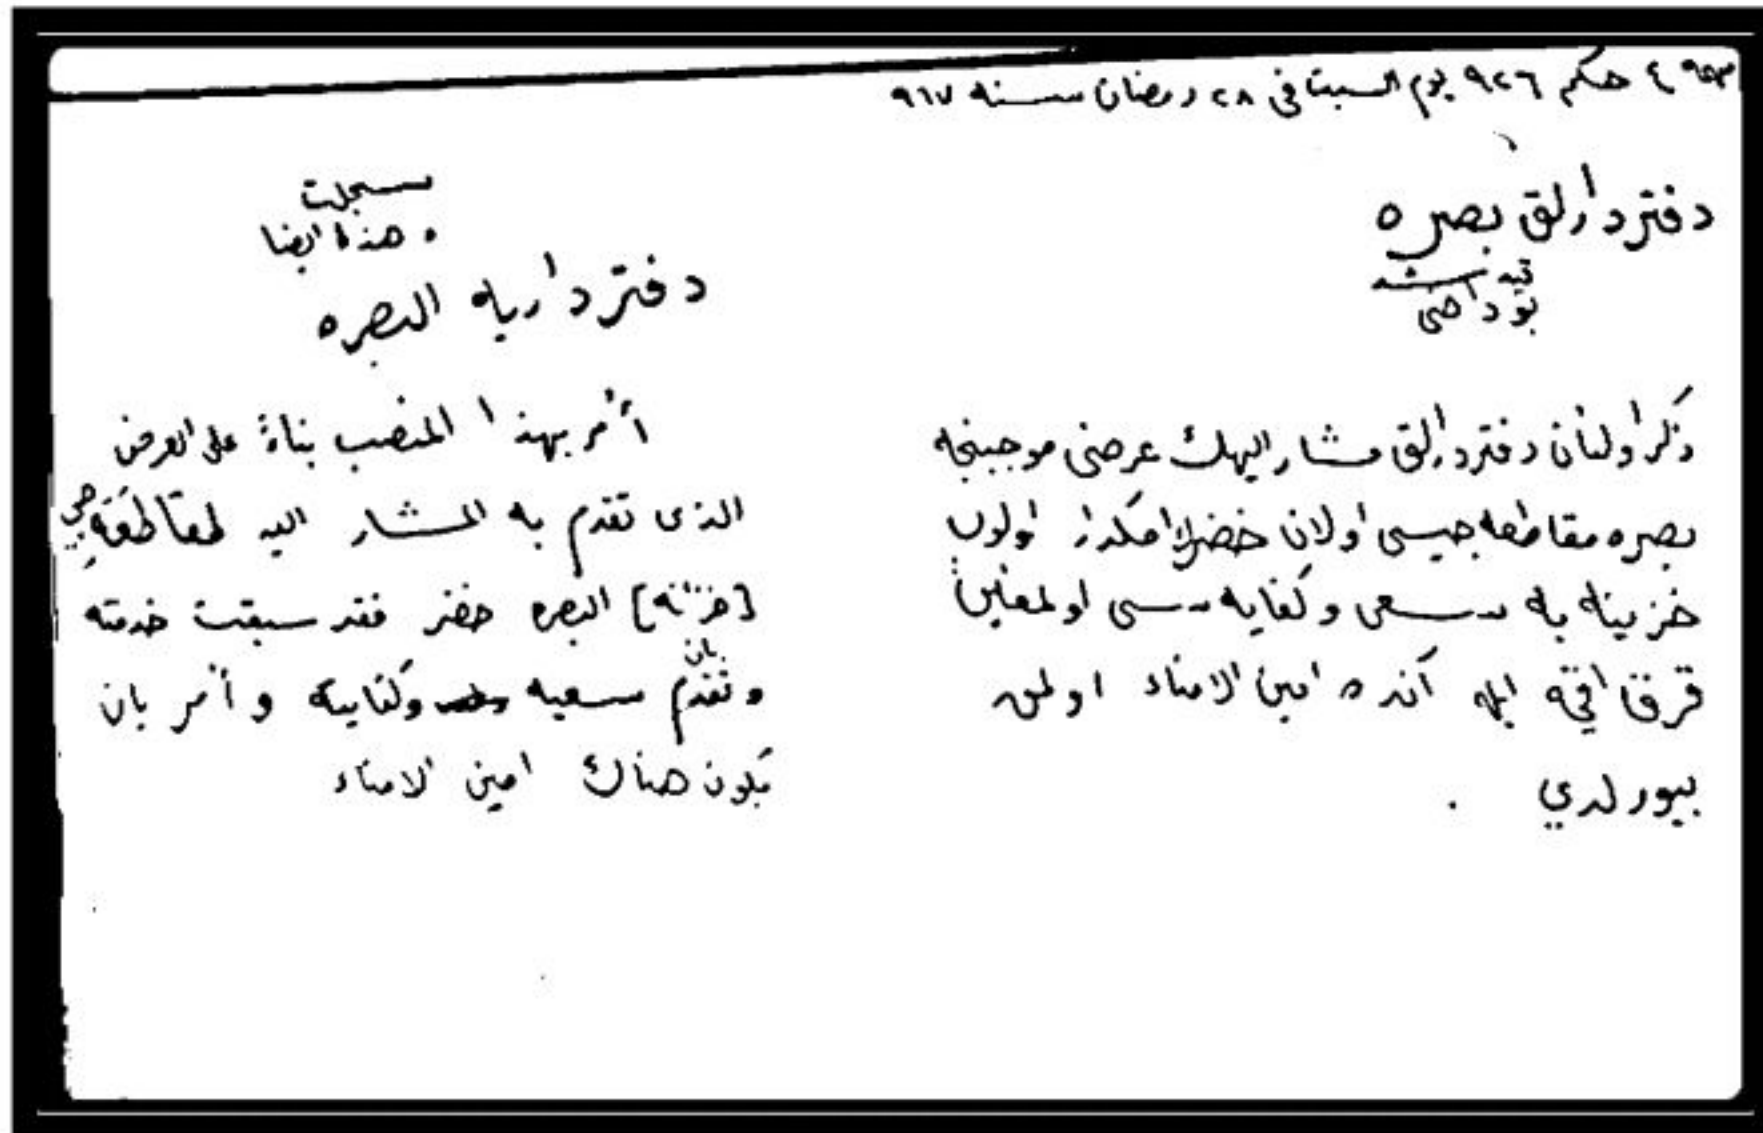 ٤ حكم ٩٢٦ يوم السبت في ٢٨ رمضان سنه ٩٦٧
دفتردارلق بصره
بو دخى
ذكر اولنان دفتردارلق مشار اليهك عرضى موجبنجه
بصره مقاطعه جيسى اولان خضر اولوب
خزينه يه سعى وكفايه سى اولمغين
قرق اقچه ايله آنده امين الامناء اولمق
بيورلدي
سجلت
وهذه ايضا
دفتردارية البصره
أمر بهذا المنصب بناءً على العرض
الذى تقدم به المشار اليه لمقاطعه جي
[خزانه] البصره خضر فقد سبقت خدمته
وتقدم سعيه وكفايته وأمر بان
يكون هناك امين الامناء